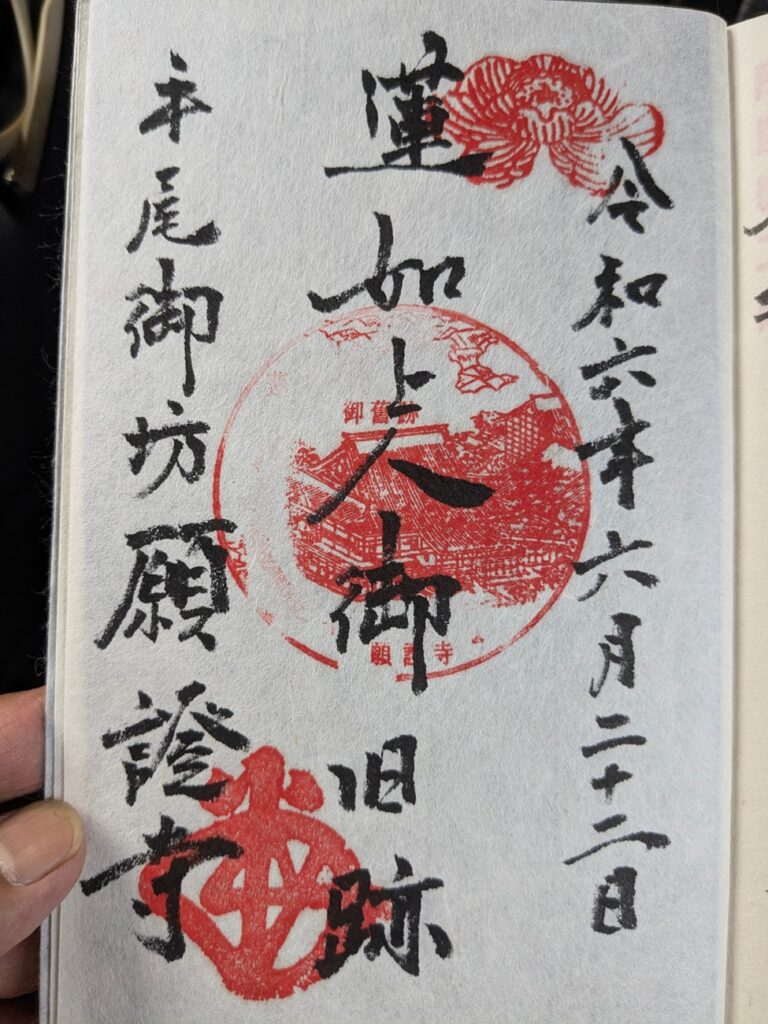 令和六年六月二十二日
蓮如上人御旧跡
平尾御坊願證寺
御舊跡
願證寺